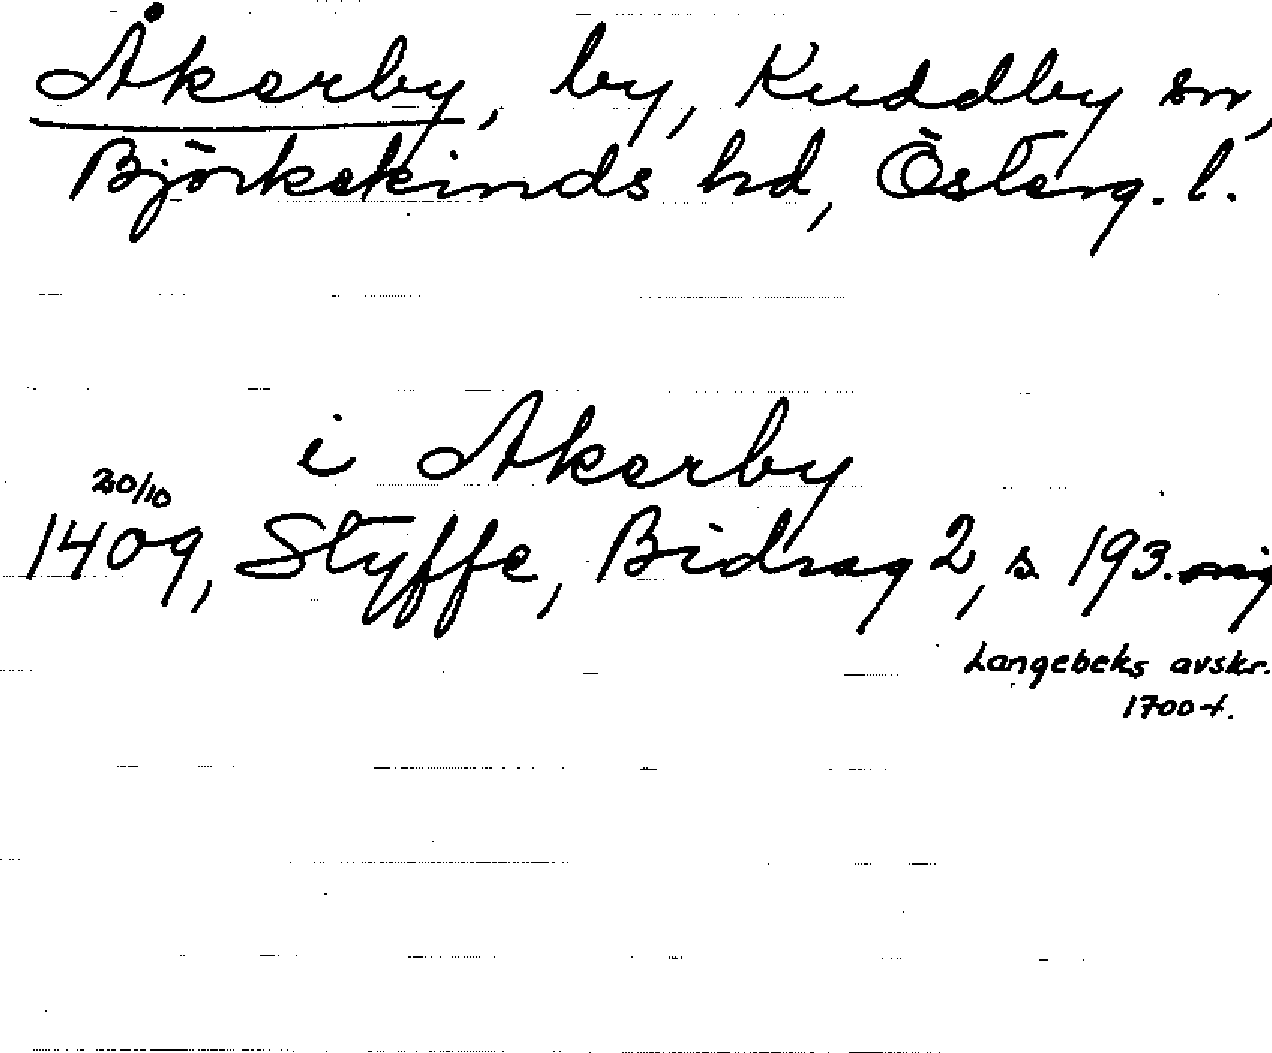 Åkerby, by, Kuddby sn,
Björkekinds hd, Österg. l.
i Akerby
20/10
1409, Styffe, Bidrag 2, s. 193.
Langebeks avskr.
1700-t.